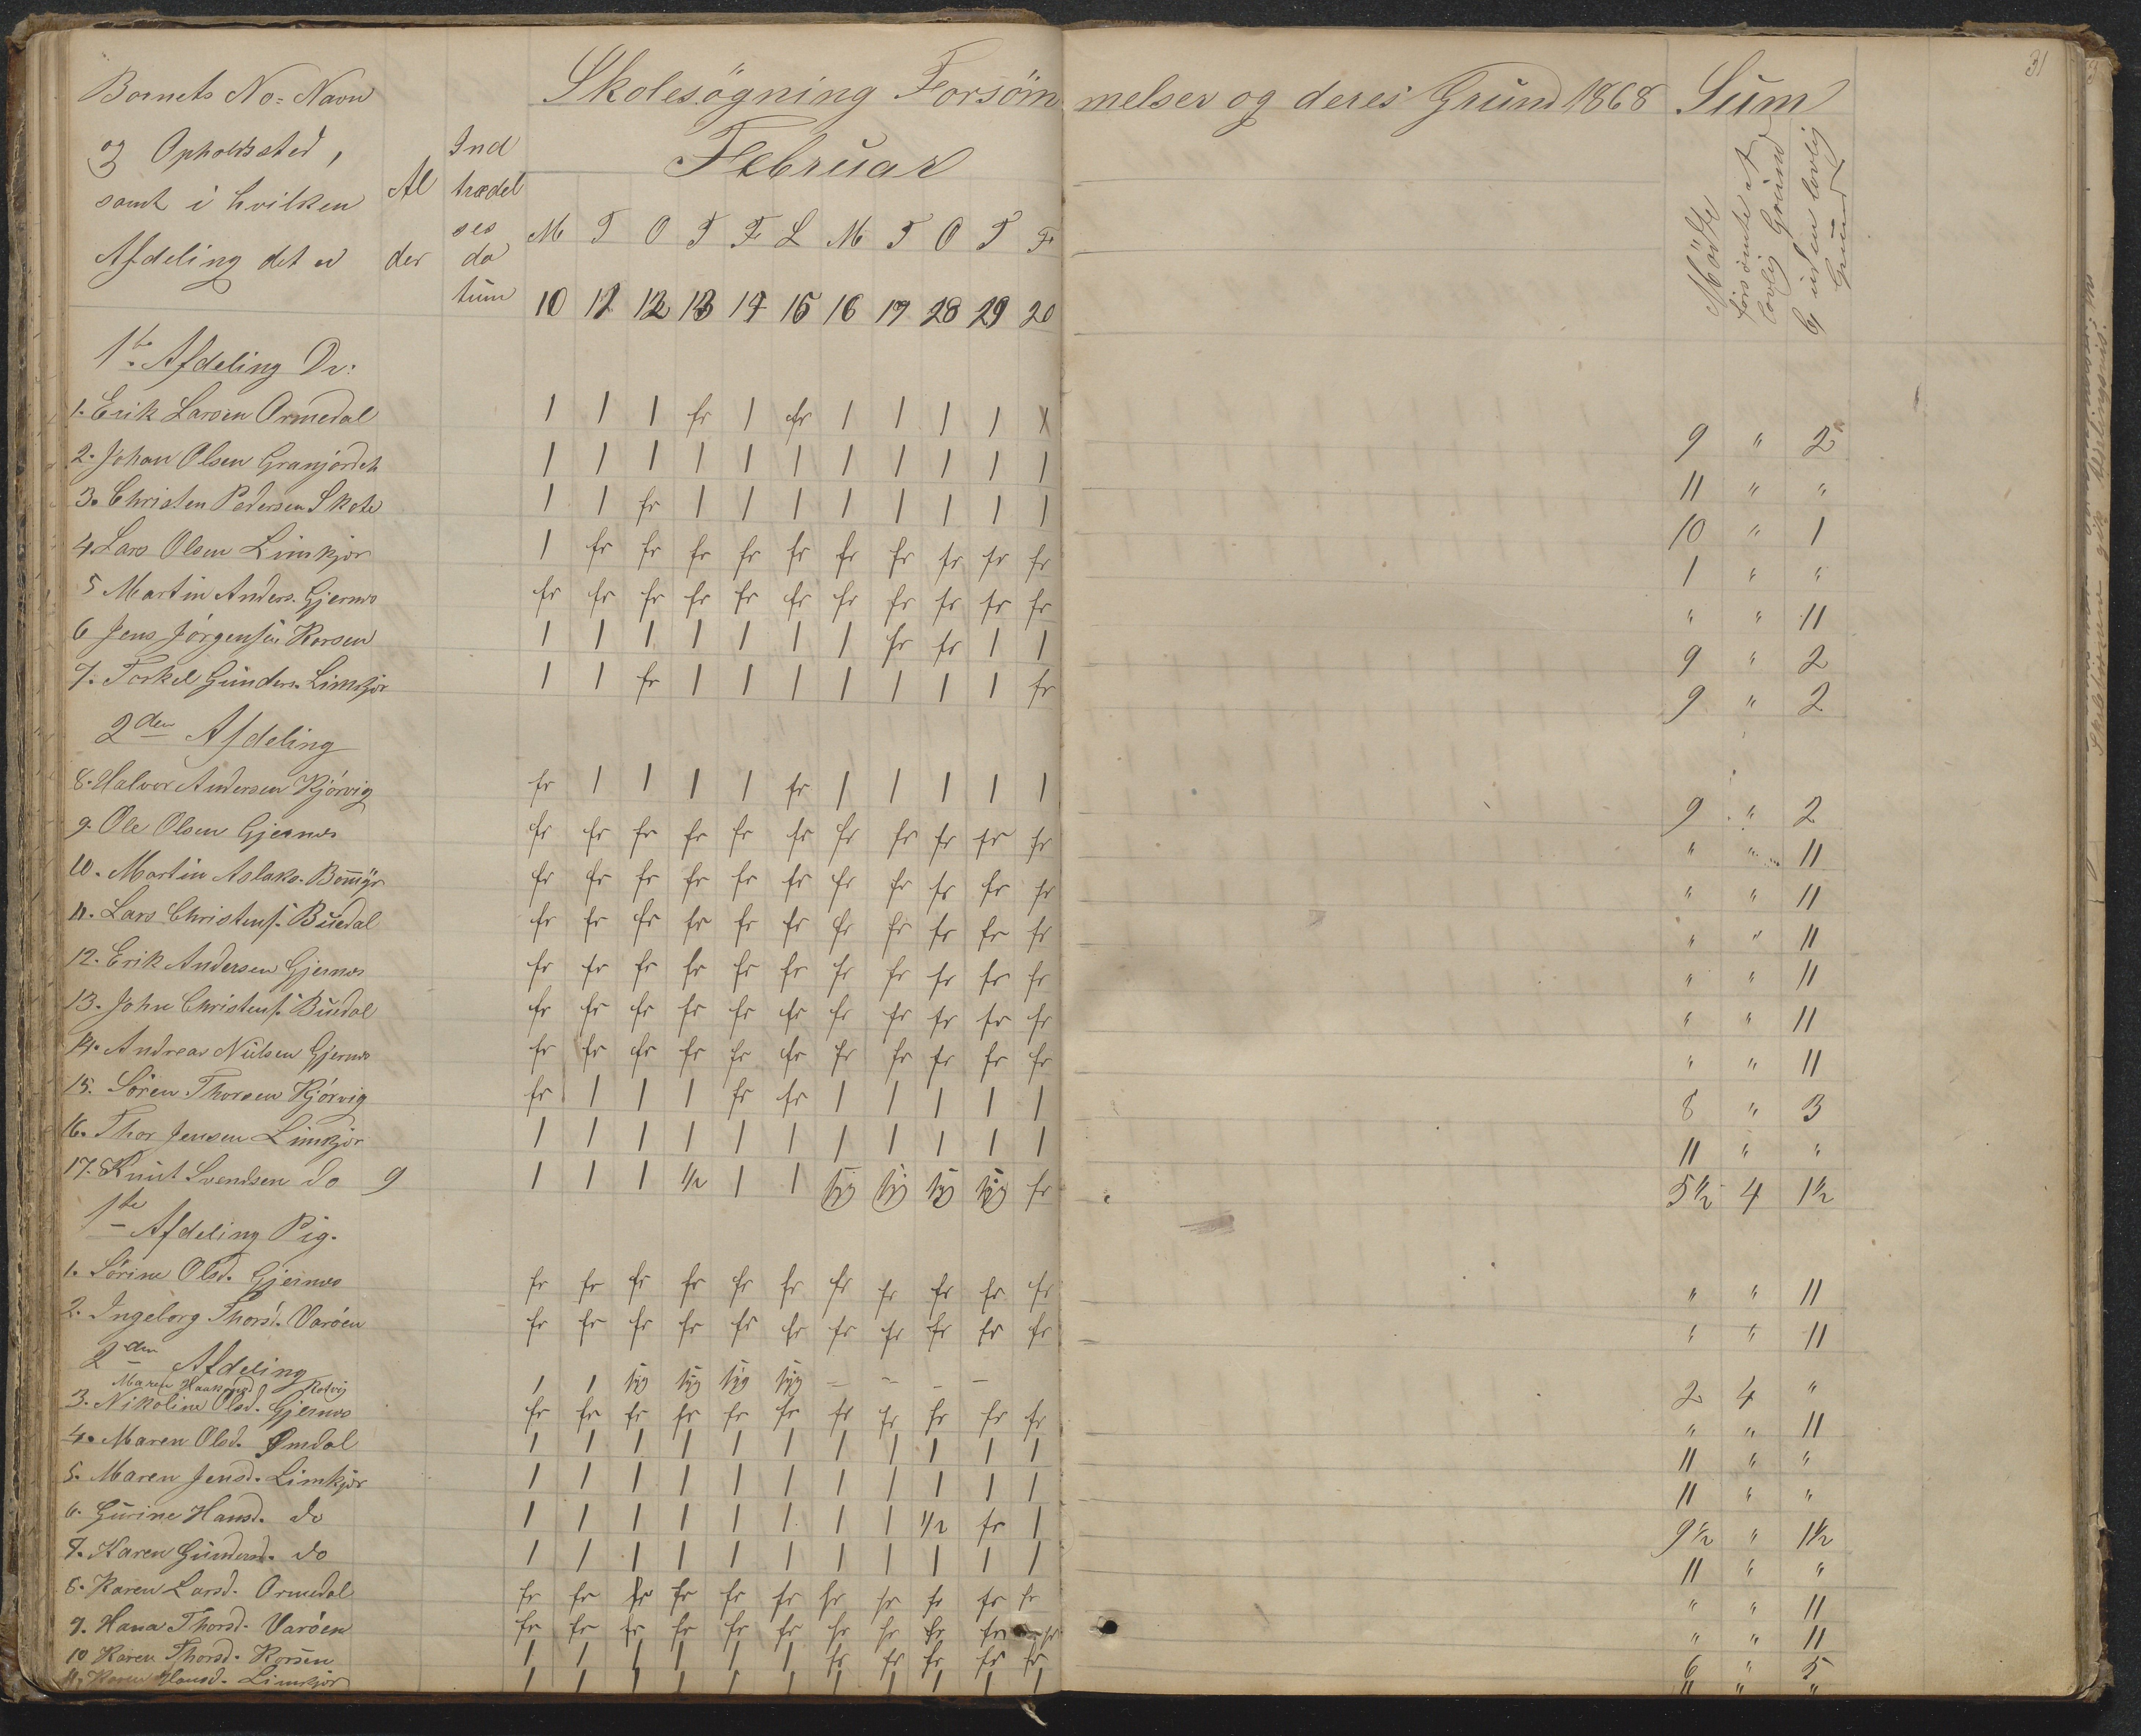 31
Skolesögning Forsömmelser og deres Grund 1868 Sum
Barnets No= Navn
og Opholdssted,
samt i hvilken
Afdeling det er
Al
der
Ind
trædel
ses
da
tum
Februar
M T O T F L M T O T F
10 11 12 13 14 15 16 17 28 29 20
Mödte
forsömte af
lovlig Grund
uden lovlig
Grund
1te Afdeling Dr:
1. Erik Larsen Ormedal 1 1 1 fr 1 fr 1 1 1 1 1 9 " 2
2. Johan Olsen Granjordet 1 1 1 1 1 1 1 1 1 1 1 11 " "
3. Christen Pedersen Skete 1 1 fr 1 1 1 1 1 1 1 1 10 " 1
4. Lars Olsen Limkjör 1 fr fr fr fr fr fr fr fr fr fr 1 " "
5 Martin Anders. Gjernes fr fr fr fr fr fr fr fr fr fr fr " " 11
6 Jens Jörgensen Korsen 1 1 1 1 1 1 1 fr fr 1 1 9 " 2
7. Torkel Gunders. Limkjör 1 1 fr 1 1 1 1 1 1 1 fr 9 " 2
2den Afdeling
8. Halvor Andersen Kjörvig fr 1 1 1 1 fr 1 1 1 1 1 9 " 2
9. Ole Olsen Gjernes fr fr fr fr fr fr fr fr fr fr fr " " 11
10. Martin Aslaks. Bommyr fr fr fr fr fr fr fr fr fr fr fr " " 11
11. Lars Christens. Buedal fr fr fr fr fr fr fr fr fr fr fr " " 11
12. Erik Andersen Gjernes fr fr fr fr fr fr fr fr fr fr fr " " 11
13. John Christens. Buedal fr fr fr fr fr fr fr fr fr fr fr " " 11
14. Andreas Nielsen Gjernes fr fr fr fr fr fr fr fr fr fr fr " " 11
15. Sören Thorsen Kjörvig fr 1 1 1 fr fr 1 1 1 1 1 8 " 3
16. Thor Jensen Limkjör 1 1 1 1 1 1 1 1 1 1 1 11 " "
17. Knut Svendsen do 9 1 1 1 1/2 1 1 syg syg syg syg fr 5 1/2 4 1 1/2
1te Afdeling Pig.
1. Sörine Olsd. Gjernes fr fr fr fr fr fr fr fr fr fr fr " " 11
2. Ingeborg Thorsd. Varöen fr fr fr fr fr fr fr fr fr fr fr " " 11
2den Afdeling
Maren 1 1 syg syg syg syg – – – – 2 4 "
3. Nikoline Olsd. Gjernes fr fr fr fr fr fr fr fr fr fr fr " " 11
4. Maren Olsd. Omdal 1 1 1 1 1 1 1 1 1 1 1 11 " "
5. Maren Jensd. Limkjör 1 1 1 1 1 1 1 1 1 1 1 11 " "
6. Gurine Hansd. do 1 1 1 1 1 1 1 1 1/2 fr 1 9 1/2 " 1 1/2
7. Karen Gundersd. do 1 1 1 1 1 1 1 1 1 1 1 11 " "
8. Karen Larsd. Ormedal fr fr fr fr fr fr fr fr fr fr fr " " 11
9. Hana Thorsd. Varöen fr fr fr fr fr fr fr fr fr fr fr " " 11
10 Karen Thorsd. Korsen 1 1 1 1 1 1 fr fr fr fr fr 6 " 5
11. Karen Hansd. Limkjör 1 1 1 1 1 1 1 1 1 1 1 11 " "